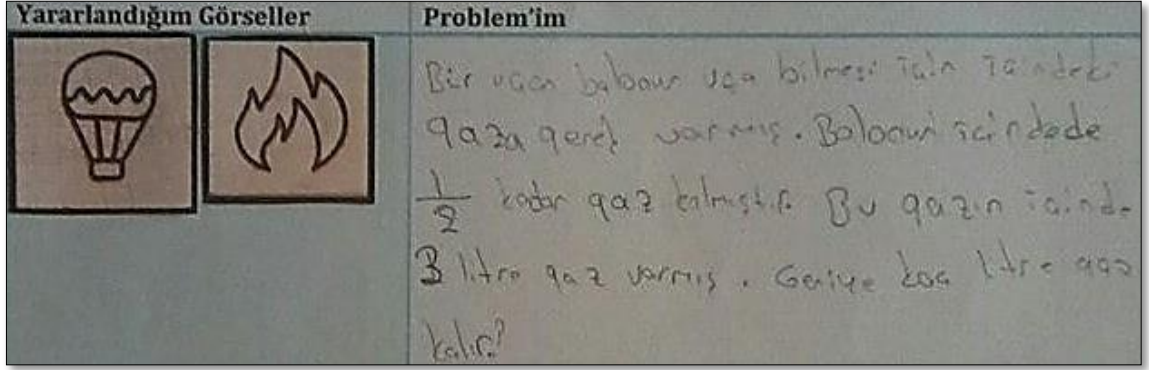 Yararlandığım Görseller
Problem'im
Bir uçan balonun uça bilmesi için içindeki
gaza gerek varmış. Balonun içindede
1/2 kadar gaz kalmıştır. Bu gazın içinde
3 litre gaz varmış. Geriye kaç litre gaz
kalır?